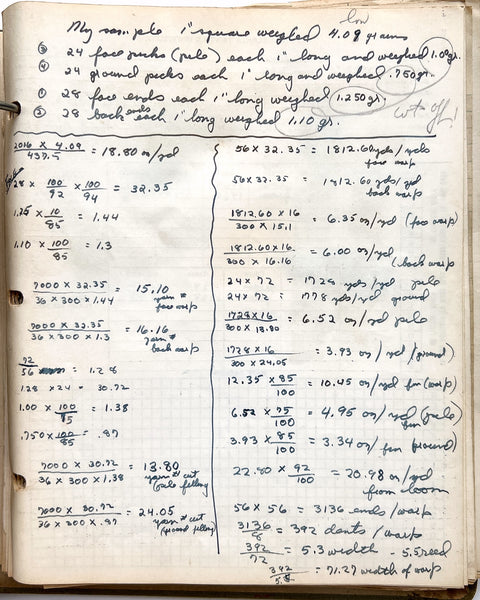 low
My sample 1" square weighed 4.09 grains
③ 24 face picks (pile) each 1" long and weighed 1.00 gr.
④ 24 ground picks each 1" long and weighed .750 gr.
① 28 face ends each 1" long weighed 1.250 gr.
② 28 back ends each 1" long weighed 1.10 gr.
wt off!
2016 x 4.09 / 437.5 = 18.80 oz/yd
28 x 100/92 x 100/94 = 32.35
1.25 x 10/85 = 1.44
1.10 x 100/85 = 1.3
7000 x 32.35 / 36 x 300 x 1.44 = 15.10
yarn #
face warp
7000 x 32.35 / 36 x 300 x 1.3 = 16.16
yarn #
back warp
72/56 = 1.28
1.28 x 24 = 30.72
1.00 x 100/75 = 1.38
.750 x 100/85 = .87
7000 x 30.72 / 36 x 300 x 1.38 = 13.80
yarn # cut
(pile filling)
7000 x 30.72 / 36 x 300 x .87 = 24.05
yarn # cut
(ground filling)
56 x 32.35 = 1812.60 yds/yds
face warp
56 x 32.35 = 1812.60 yds/yd
back warp
1812.60 x 16 / 300 x 15.1 = 6.35 oz/yd (face warp)
1812.60 x 16 / 300 x 16.16 = 6.00 oz/yd
(back warp
24 x 72 = 1728 yds/yd pile
24 x 72 = 1778 yds/yd ground
1728 x 16 / 300 x 13.80 = 6.52 oz/yd pile
1728 x 16 / 300 x 24.05 = 3.93 oz/yd (ground)
12.35 x 85/100 = 10.45 oz/yd fin (warp)
6.52 x 75/100 = 4.95 oz/yd (pile)
fin
3.93 x 85/100 = 3.34 oz/fin (ground)
22.80 x 92/100 = 20.98 oz/yd
from loom
56 x 56 = 3136 ends/warp
3136/8 = 392 dents/warp
392/72 = 5.3 width - 5.5 reed
392/5.5 = 71.27 width of warp